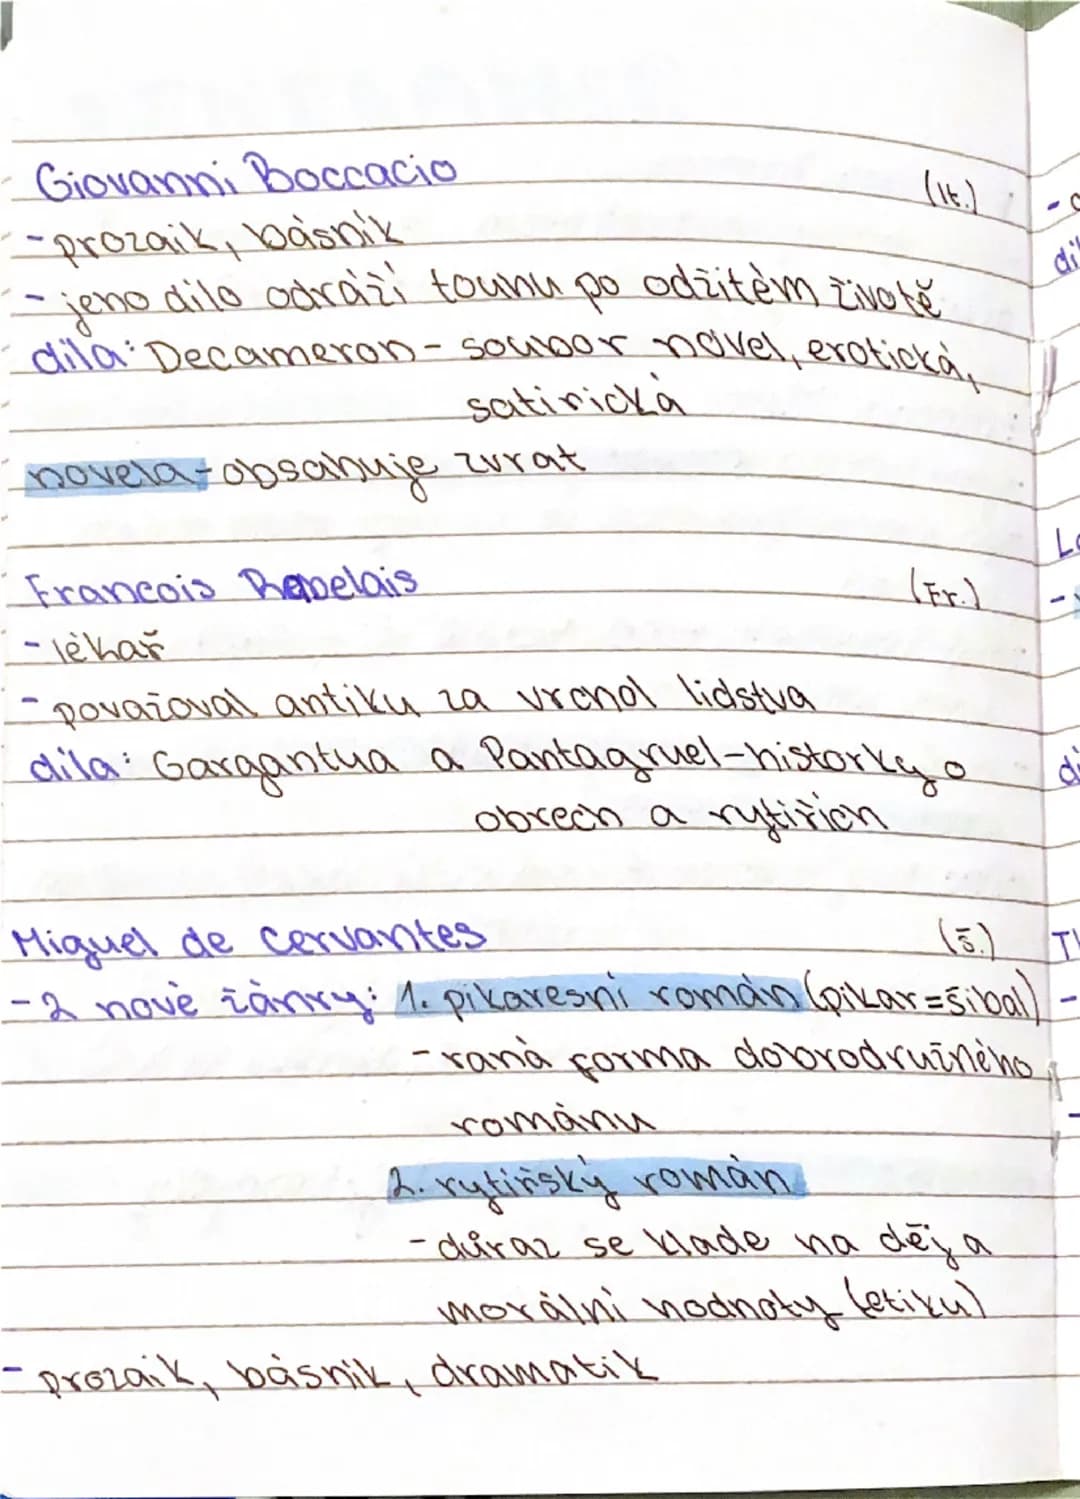 Giovanni Boccacio (It.)
- prozaik, básník
- jeho dílo odráží touhu po odžitém životě
díla: Decameron - soubor novel, erotická,
satirická
novela - obsahuje zvrat
Francois Rabelais (Fr.)
- lékař
- považoval antiku za vrchol lidstva
díla: Gargantua a Pantagruel - historky o
obrech a rytířích
Miguel de Cervantes (Š.)
- 2 nové žánry: 1. pikareshí román (pikar = šibal)
- raná forma dobrodružného
románu
2. rytířský román
- důraz se klade na děj a
morální hodnoty (etiku)
- prozaik, básník, dramatik